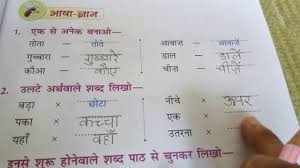 भाषा-ज्ञान
1. एक से अनेक बनाओ-
तोता - तोते आवाज - आवाजें
गुब्बारा - गुब्बारे डाल - डालें
कौआ - कौए चीज - चीज़ें
2. उलटे अर्थवाले शब्द लिखो-
बड़ा × छोटा नीचे × ऊपर
पका × कच्चा एक ×
यहाँ × वहाँ उतरना ×
इनसे शुरू होनेवाले शब्द पाठ से चुनकर लिखो-